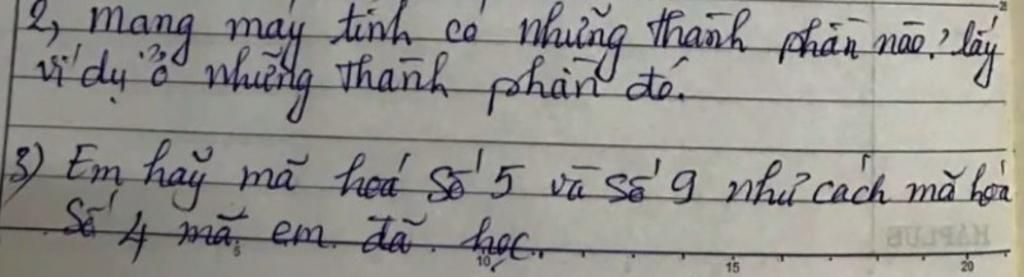 2, mạng máy tính có những thành phần nào? lấy
ví dụ ở những thành phần đó.
3) Em hãy mã hoá số 5 và số 9 như cách mã hóa
số 4 mà em đã học.
5 10 15 20
HAPLUS